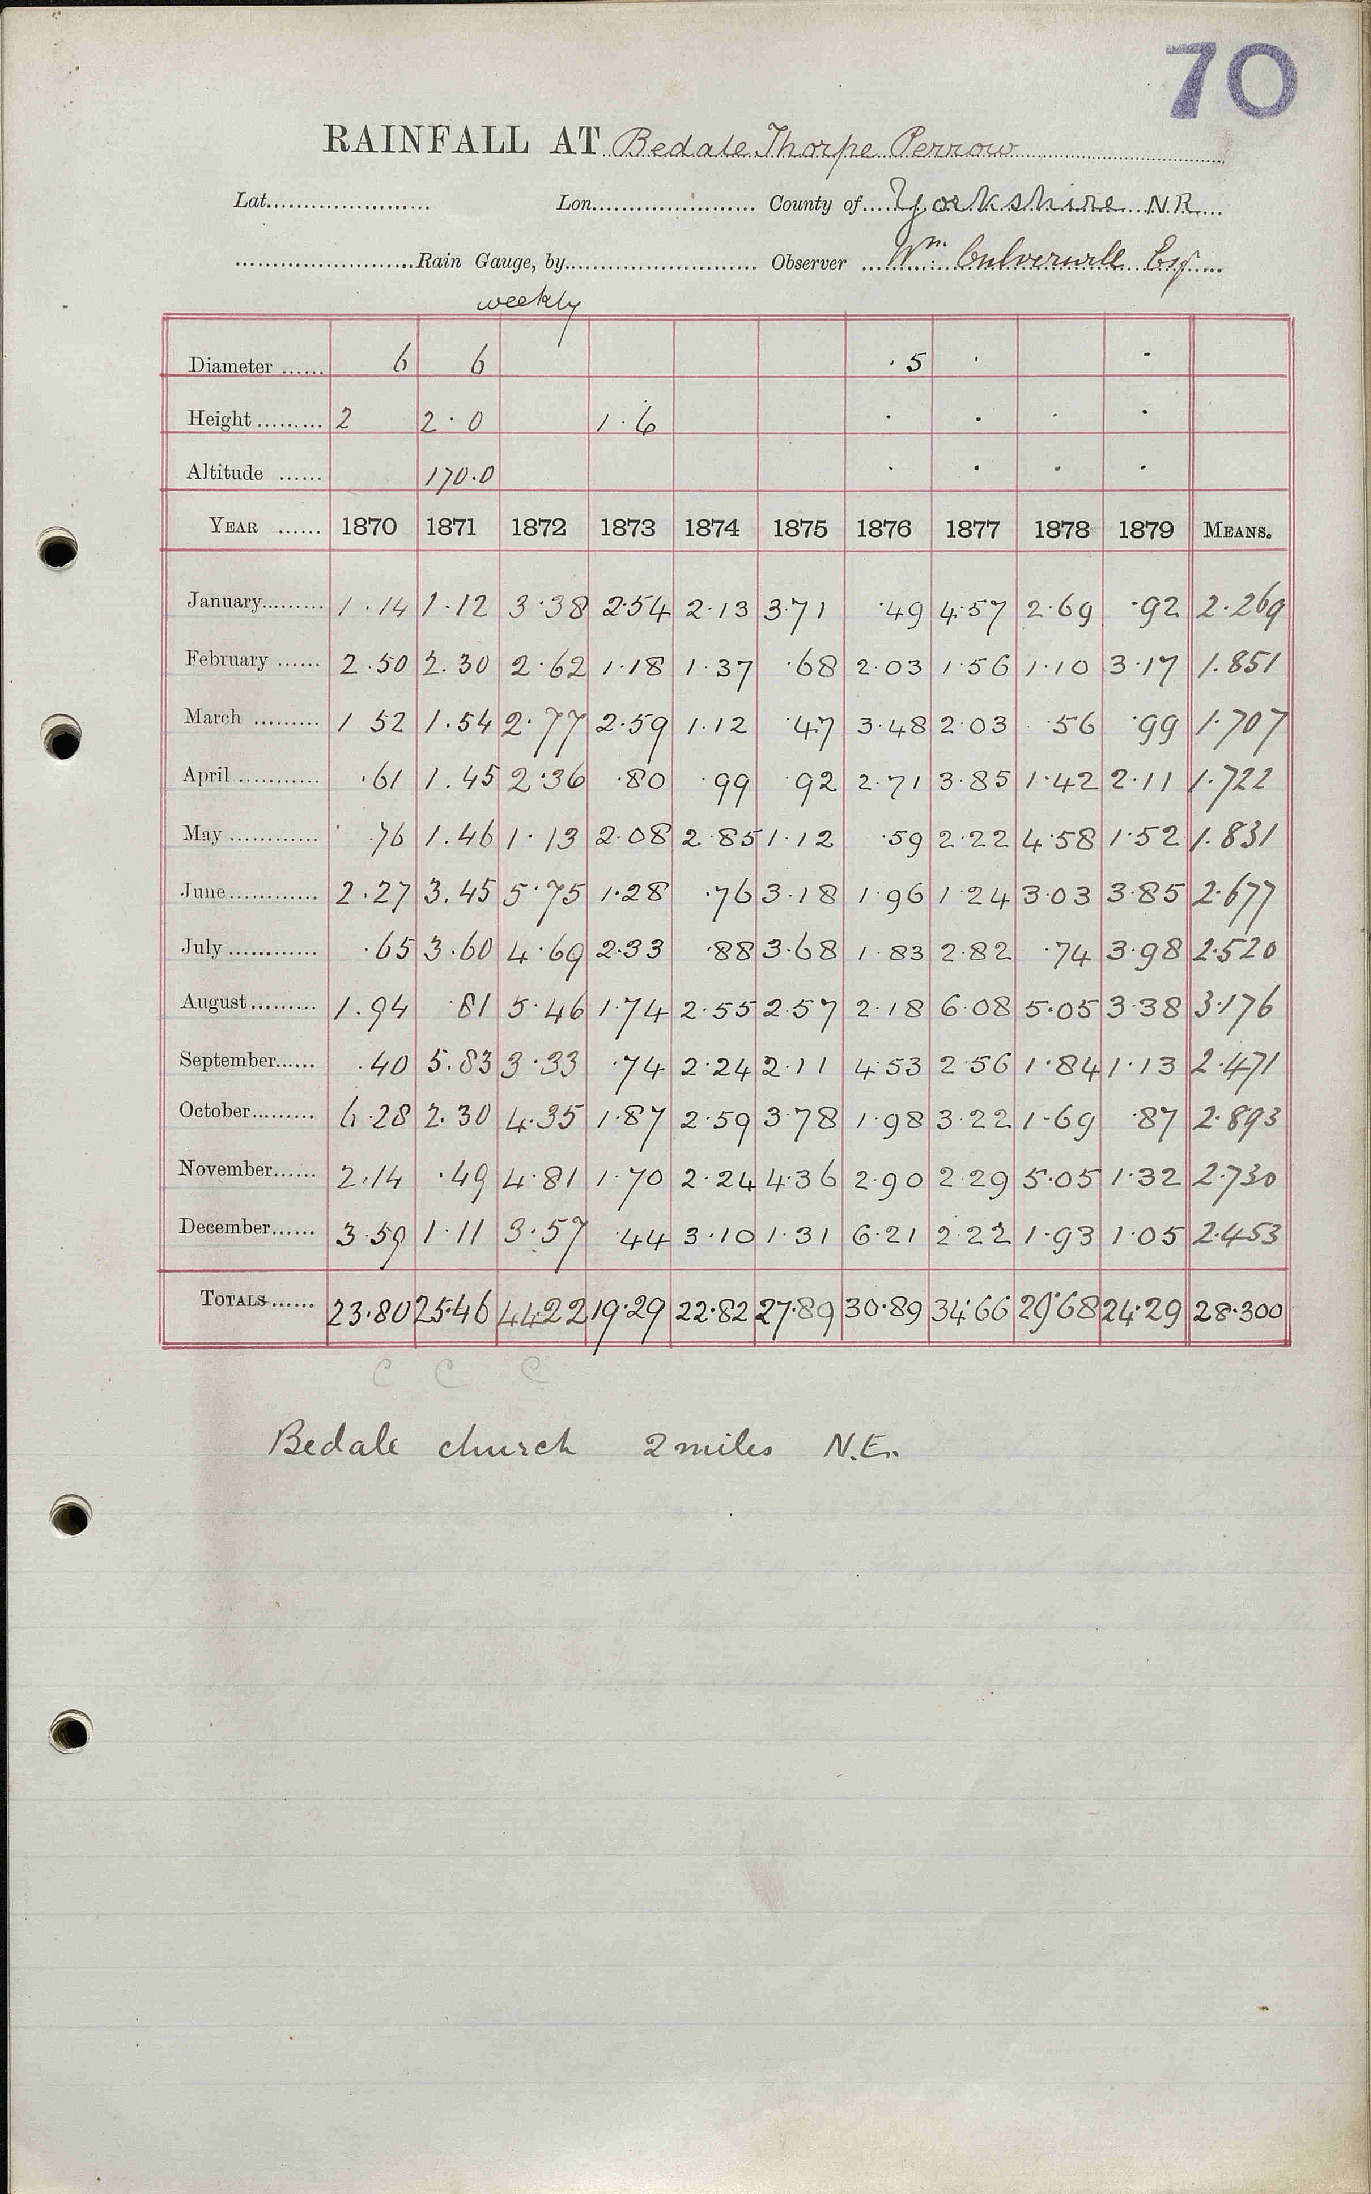 70
RAINFALL AT Bedale Thorpe Perrow
Lat. Lon. County of Yorkshire NR
Rain Gauge, by Observer Wm. Culverwell Esq
weekly
Diameter 6 6 · 5 · ·
Height 2 2·0 1·6 · · · ·
Altitude 170.0 · · · ·
YEAR 1870 1871 1872 1873 1874 1875 1876 1877 1878 1879 MEANS.
January 1.14 1.12 3.38 2.54 2.13 3.71 .49 4.57 2.69 .92 2.269
February 2.50 2.30 2.62 1.18 1.37 .68 2.03 1.56 1.10 3.17 1.851
March 1 52 1.54 2.77 2.59 1.12 .47 3.48 2.03 .56 .99 1.707
April .61 1.45 2.36 .80 .99 .92 2.71 3.85 1.42 2.11 1.722
May .76 1.46 1.13 2.08 2.85 1.12 .59 2.22 4.58 1.52 1.831
June 2.27 3.45 5.75 1.28 .76 3.18 1.96 1.24 3.03 3.85 2.677
July .65 3.60 4.69 2.33 .88 3.68 1.83 2.82 .74 3.98 2.520
August 1.94 .81 5.46 1.74 2.55 2.57 2.18 6.08 5.05 3.38 3.176
September .40 5.83 3.33 .74 2.24 2.11 4.53 2.56 1.84 1.13 2.471
October 6.28 2.30 4.35 1.87 2.59 3.78 1.98 3.22 1.69 .87 2.893
November 2.14 .49 4.81 1.70 2.24 4.36 2.90 2.29 5.05 1.32 2.730
December 3.59 1.11 3.57 .44 3.10 1.31 6.21 2.22 1.93 1.05 2.453
TOTALS 23.80 25.46 44.22 19.29 22.82 27.89 30.89 34.66 29.68 24.29 28.300
C C C
Bedale church 2 miles N.E.